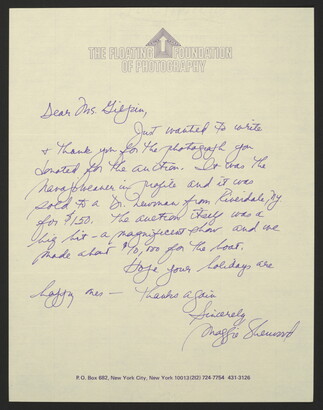 THE FLOATING FOUNDATION
OF PHOTOGRAPHY
Dear Ms. Gilpin,
Just wanted to write
& thank you for the photograph you
donated for the auction. It was the
Navajo weaver in profile and it was
sold to a Dr. Newman from Riverdale, NY
for $150. The auction itself was a
big hit - a magnificent show and we
made about $10,000 for the boat.
Hope your holidays are
happy ones — Thanks again
Sincerely
Maggie Sherwood
P.O. Box 682, New York City, New York 10013 (212) 724-7754 431-3126